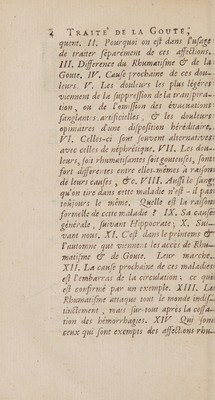 4 TRAITÉ DE LA GOUTE,
quent. II. Pourquoi on est dans l'usage
de traiter séparément de ces affections.
III. Difference du Rhumatisme & de la
Goute. IV. Cause prochaine de ces dou-
leurs. V. Les douleurs les plus légéres
viennent de la suppression de la transpira-
tion, ou de l'omission des évacuations
sanglantes artificielles, & les douleurs
opiniâtres d'une disposition héréditaire.
VI. Celles-ci sont souvent alternatives
avec celles de néphrétique. VII. Les dou-
leurs, soit rhumatisantes soit gouteuses, sont
fort differentes entre elles-mêmes à raison
de leurs causes, &c. VIII. Aussi le sang
qu'on tire dans cette maladie n'est-il pas
toûjours le même. Quelle est la raison
formelle de cette maladie? IX. Sa cause
générale, suivant Hippocrate; X. Sui-
vant nous. XI. C'est dans le printems &
l'automne que viennent les accès de Rhu-
matisme & de Goute. Leur marche.
XII. La cause prochaine de ces maladies
est l'embarras de la circulation; ce qui
est confirmé par un exemple. XIII. Le
Rhumatisme attaque tout le monde indis-
tinctement, mais sur tout après la cessa-
tion des hémorrhagies. XIV Qui sont
ceux qui sont exempts des affections rhu-